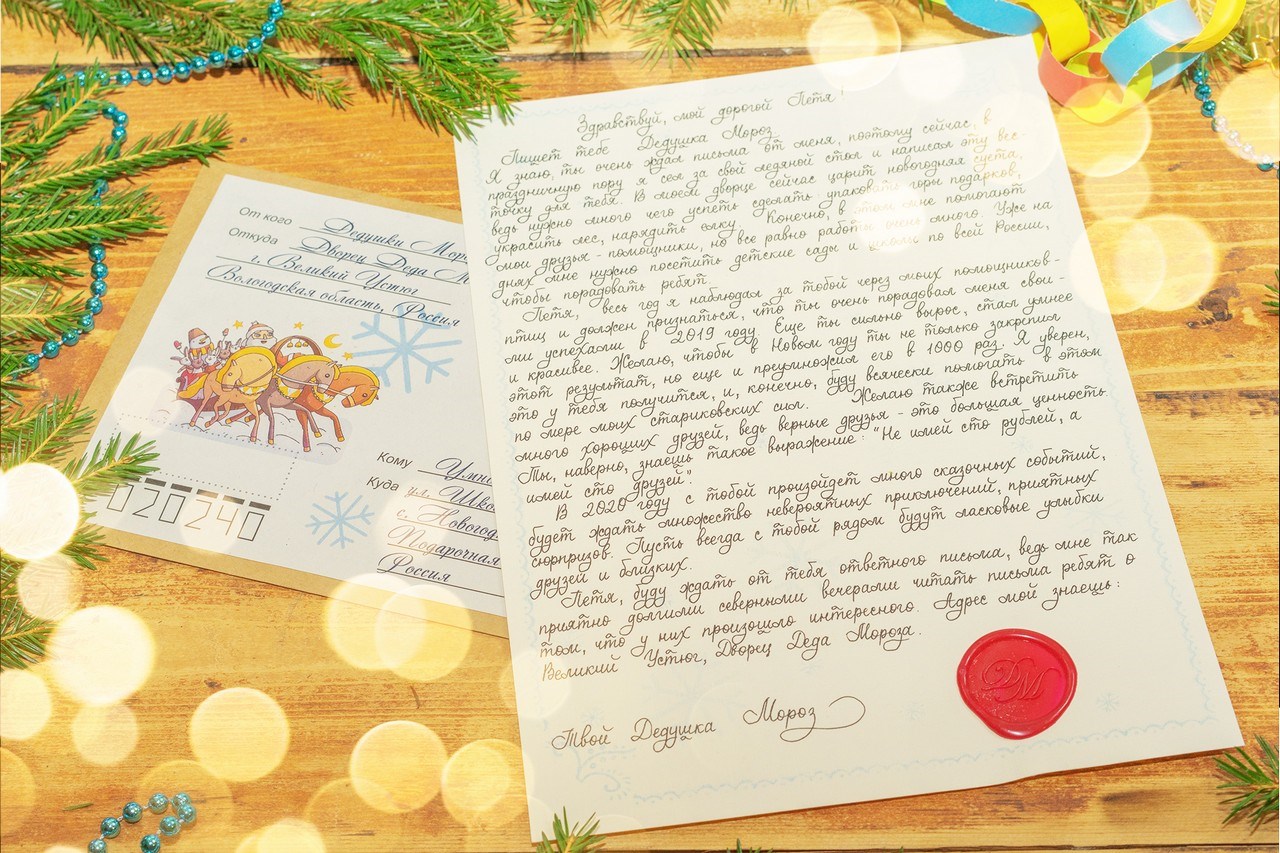 От кого Дедушки Моро
Откуда Дворец Деда М
г. Великий Устюг
Вологодская область, Россия
Кому Умни
Куда ул. Школ
с. Новогод
Подарочная
Россия
020240
Здравствуй, мой дорогой Петя!
Пишет тебе Дедушка Мороз.
Я знаю, ты очень ждал письма от меня, поэтому сейчас, в
праздничную пору я сел за свой ледяной стол и написал эту вес-
точку для тебя. В моем дворце сейчас царит новогодняя суета,
ведь нужно много чего успеть сделать: упаковать горы подарков,
украсить лес, нарядить елку. Конечно, в этом мне помогают
мои друзья - помощники, но все равно работы очень много. Уже на
днях мне нужно посетить детские сады и школы по всей России,
чтобы порадовать ребят.
Петя, весь год я наблюдал за тобой через моих помощников-
птиц и должен признаться, что ты очень порадовал меня свои-
ми успехами в 2019 году. Еще ты сильно вырос, стал умнее
и красивее. Желаю, чтобы в Новом году ты не только закрепил
этот результат, но еще и преумножил его в 1000 раз. Я уверен,
это у тебя получится, и, конечно, буду всячески помогать в этом
по мере моих стариковских сил. Желаю также встретить
много хороших друзей, ведь верные друзья - это большая ценность.
Ты, наверно, знаешь такое выражение: "Не имей сто рублей, а
имей сто друзей".
В 2020 году с тобой произойдет много сказочных событий,
будет ждать множество невероятных приключений, приятных
сюрпризов. Пусть всегда с тобой рядом будут ласковые улыбки
друзей и близких.
Петя, буду ждать от тебя ответного письма, ведь мне так
приятно долгими северными вечерами читать письма ребят о
том, что у них произошло интересного. Адрес мой знаешь:
Великий Устюг, Дворец Деда Мороза.
Твой Дедушка Мороз
ДМ